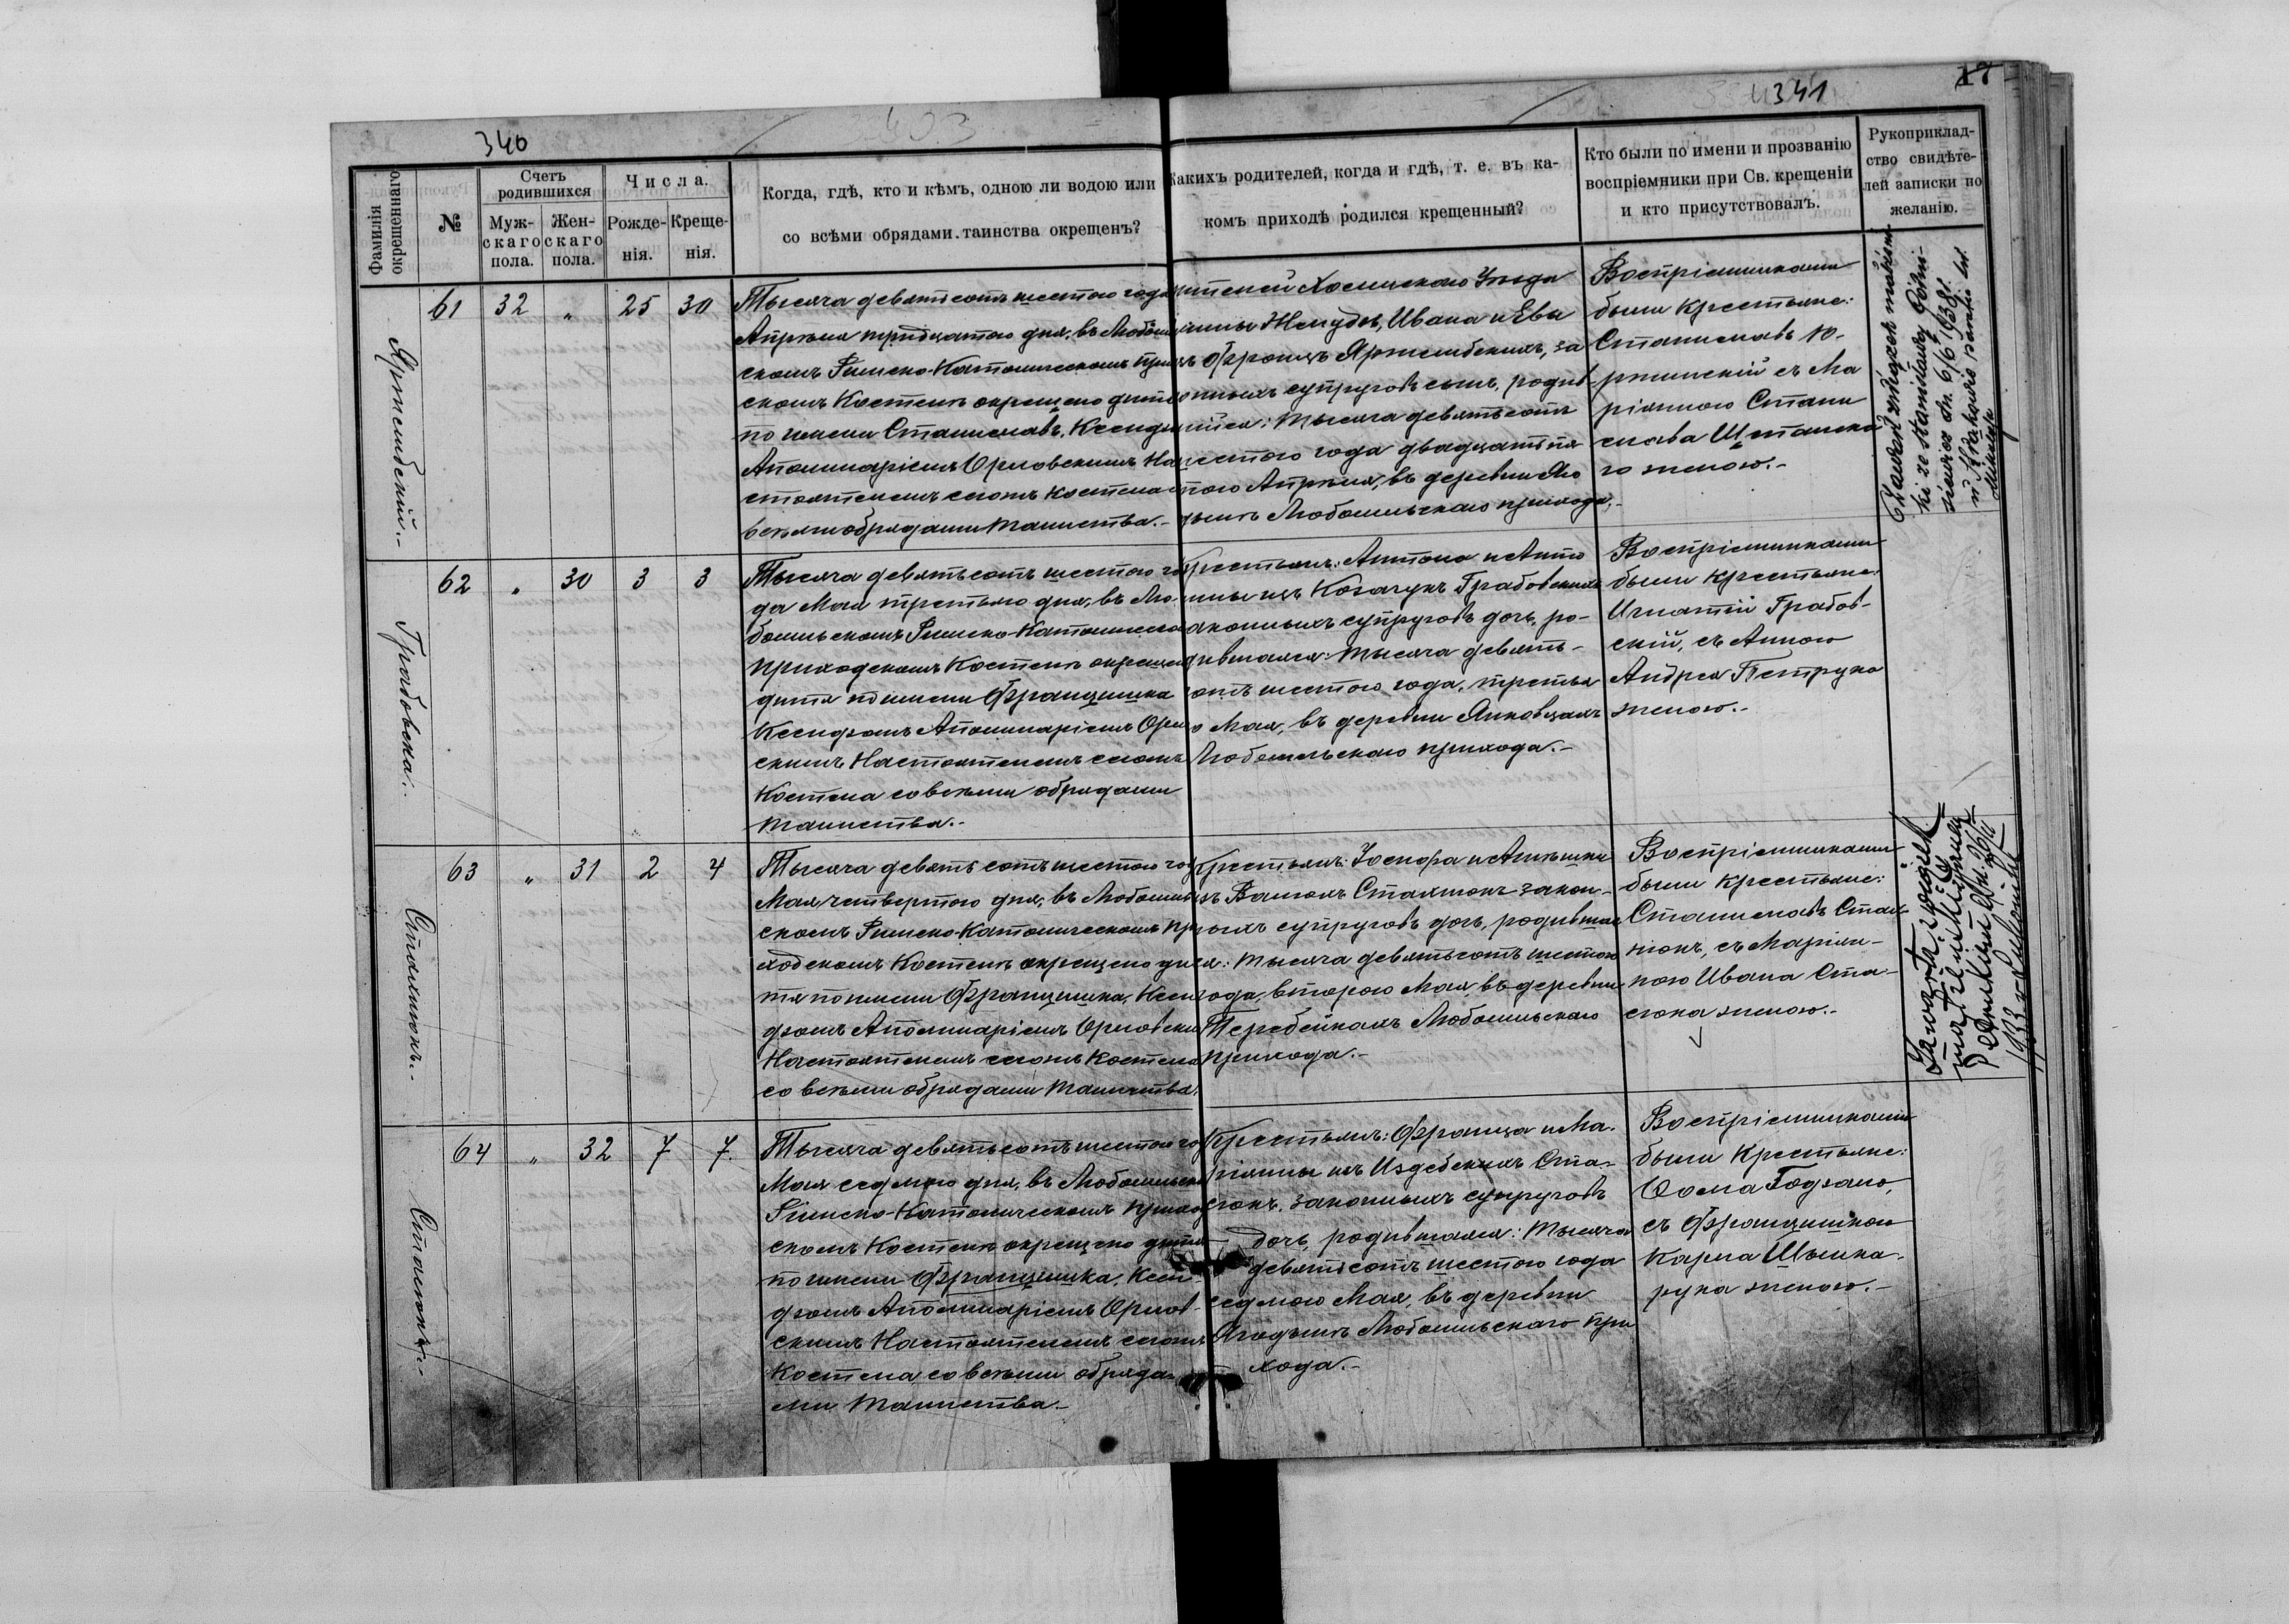 340
Фамилія окрещеннаго
№
Счетъ родившихся
Муж-скаго пола.
Жен-скаго пола.
Числа.
Рожде-нія.
Креще-нія.
Когда, гдѣ, кто и кѣмъ, одною ли водою или
со всѣми обрядами таинства окрещенъ?
Яржембскій.-
61 32 „ 25 30
Тысяча девятьсотъ шестого года
Апрѣля тридцатого дня, въ Любомль
скомъ Римско-Католическомъ при
скомъ Костелѣ окрещено дитя
по имени Станиславъ, Ксендз
Аполинаріемъ Орловскимъ На
стоятелемъ сего Костела со
всѣми обрядами таинства.-
Грабовска.-
62 „ 30 3 3
Тысяча девятьсотъ шестого го
да Мая третьяго дня, въ Лю-
бомльскомъ Римско-Католическо
приходскомъ Костелѣ окрещено
дитя по имени Францишка
Ксендзомъ Аполинаріемъ Орло
скимъ Настоятелемъ сего
Костела со всѣми обрядами
таинства.-
Стахнюкъ.-
63 „ 31 2 4
Тысяча девятьсотъ шестого го
Мая четвертого дня, въ Любомль
скомъ Римско-Католическомъ при
ходскомъ Костелѣ окрещено ди
тя по имени Францишка, Ксен
дзомъ Аполинаріемъ Орловски
Настоятелемъ сего Костела
со всѣми обрядами таинства.
Стасюкъ.-
64 „ 32 7 7.
Тысяча девятьсотъ шестого го
Мая седьмого дня, въ Любомльско
Римско-Католическомъ прихо
скомъ Костелѣ окрещено дитя
по имени Францишка, Ксен-
дзомъ Аполинаріемъ Орлов-
скимъ Настоятелемъ сего
Костела, со всѣми обряда-
ми таинства.-
341
17
Какихъ родителей, когда и гдѣ, т. е. въ ка-
комъ приходѣ родился крещенный?
Кто были по имени и прозванію
воспріемники при Св. крещеніи
и кто присутствовалъ.
Рукоприклад-
ство свидѣте-
лей записки по
желанію.
ителей Холмскаго Уѣзда
Ивана и Евы
Яржембскихъ, за
конныхъ супруговъ сынъ, родив-
шійся: тысяча девятьсотъ
шестого года двадцать пя
того Апрѣля, въ деревни Яго
дынѣ Любомльскаго прихода.-
Воспріемниками
были Крестьяне:
Станиславъ
съ Ма
ріянною Стани
слава
го женою.-
Zawarł związek małżeń-
ski ze Stanisławą
dn. 6/6 1938 r.
w
Крестьянъ: Антона и Анто
нины изъ Козачукъ Грабовскихъ
законныхъ супруговъ дочь, ро-
дившаяся: тысяча девять-
сотъ шестого года, третья
го Мая, въ деревни Янковцахъ
Любомльскаго прихода.-
Воспріемниками
были Крестьяне:
Игнатій Грабов-
скій, съ Анною
Андрея Петрука
женою.-
Крестьянъ: Іосифа и Агнѣшки
Стахнюкъ закон-
ныхъ супруговъ дочь, родившая
ся: тысяча девятьсотъ шестого
года, второго Мая, въ деревни
Теребейкахъ Любомльскаго
прихода.-
Воспріемниками
были Крестьяне:
Станиславъ Стах-
нюкъ, съ Маріян-
ною Ивана Ста-
сюка женою.-
Zawarła związek
małżeński
1933 r.
Крестьянъ: Франца и Ма-
ріянны изъ Издебскихъ Ста-
сюкъ, законныхъ супруговъ
дочь, родившаяся: тысяча
девятьсотъ шестого года
седьмого Мая, въ деревни
Ягодынѣ Любомльскаго при
хода.-
Воспріемниками
были Крестьяне:
Ѳома
съ Францишкою
Карла
рука женою.-